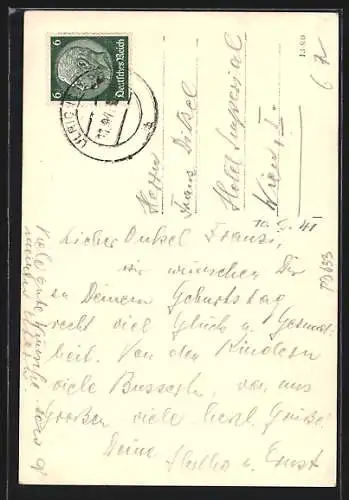 6 Deutsches Reich 6
Herrn
Franz
Hotel Imperial
Wien I.
1380
6 K
10.9.41
Lieber Onkel Franz,
wir wünschen Dir
zu Deinem Geburtstag
recht viel Glück u. Gesund-
heit. Von den Kindern
viele Busserln, von uns
Großen viele herzl. Grüße
Deine
u. Ernst
Viele gute Wünsche